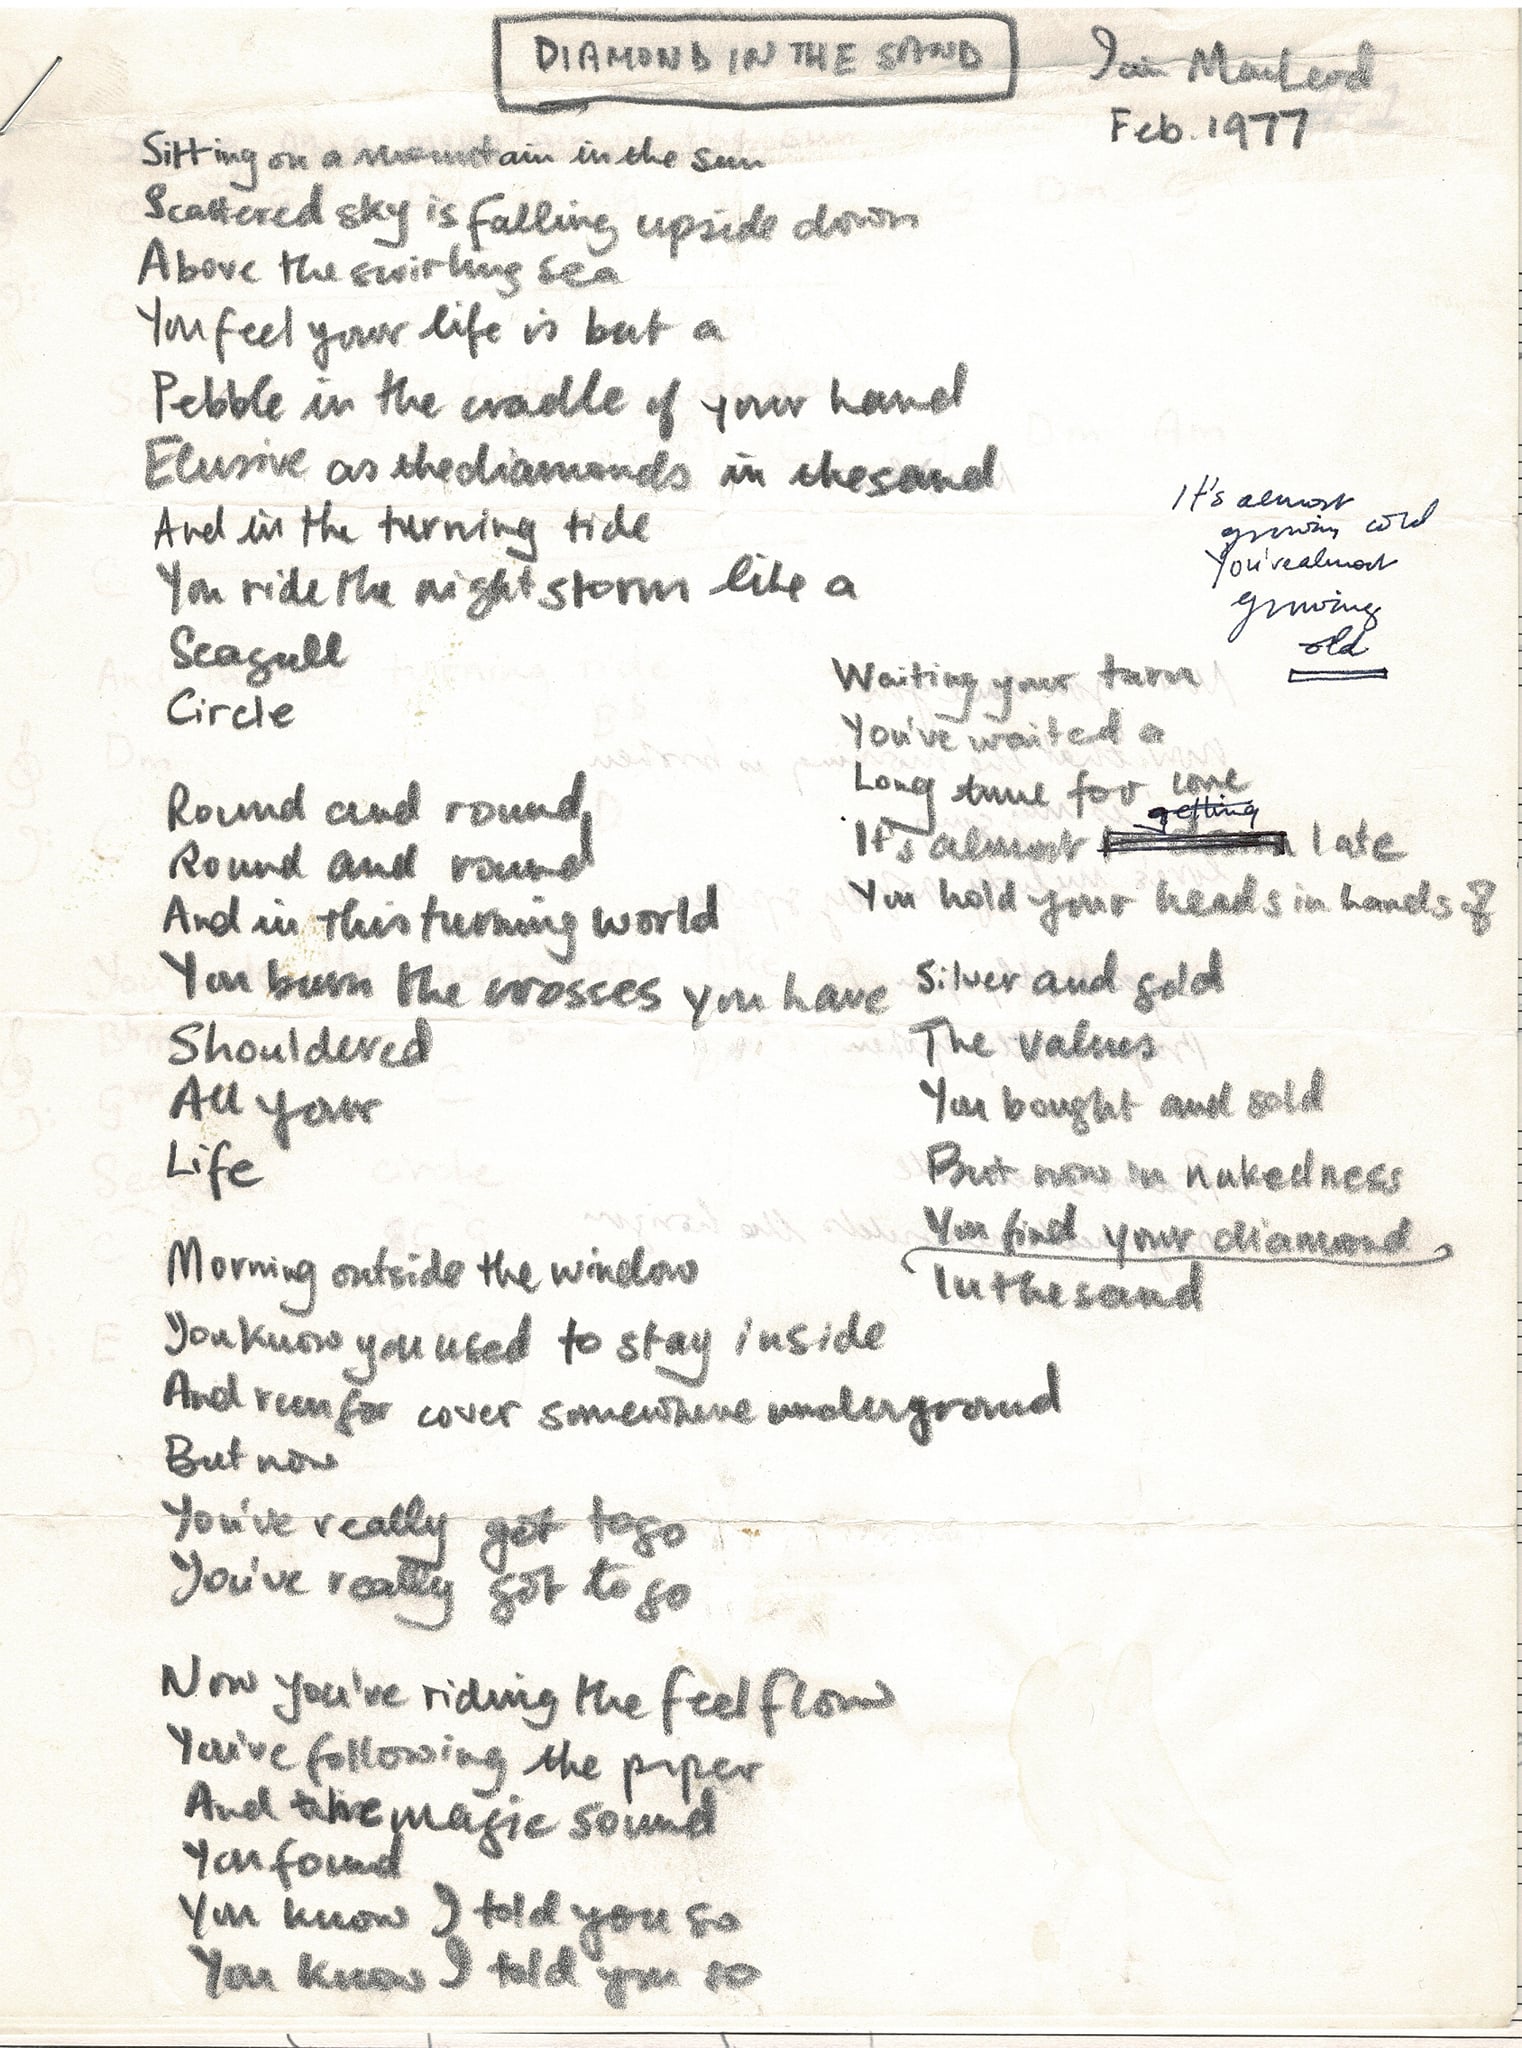 DIAMOND IN THE SAND
Iain MacLeod
Feb. 1977
Sitting on a mountain in the sun
Scattered sky is falling upside down
Above the swirling sea
You feel your life is but a
Pebble in the cradle of your hand
Elusive as the diamonds in the sand
And in the turning tide
You ride the night storm like a
Seagull
Circle
Round and round
Round and round
And in this turning world
You burn the crosses you have
Shouldered
All your
Life
Morning outside the window
You know you used to stay inside
And run for cover somewhere underground
But now
You've really got to go
You've really got to go
Now you've riding the feel flow
You've following the piper
And the magic sound
You found
You know I told you so
You know I told you so
It's almost
growing cold
You're almost
growing
old
Waiting your turn
You've waited a
Long time for love
getting
It's almost late
You hold your heads in hands of
Silver and gold
The values
You bought and sold
But now in nakedness
You find your diamond
In the sand